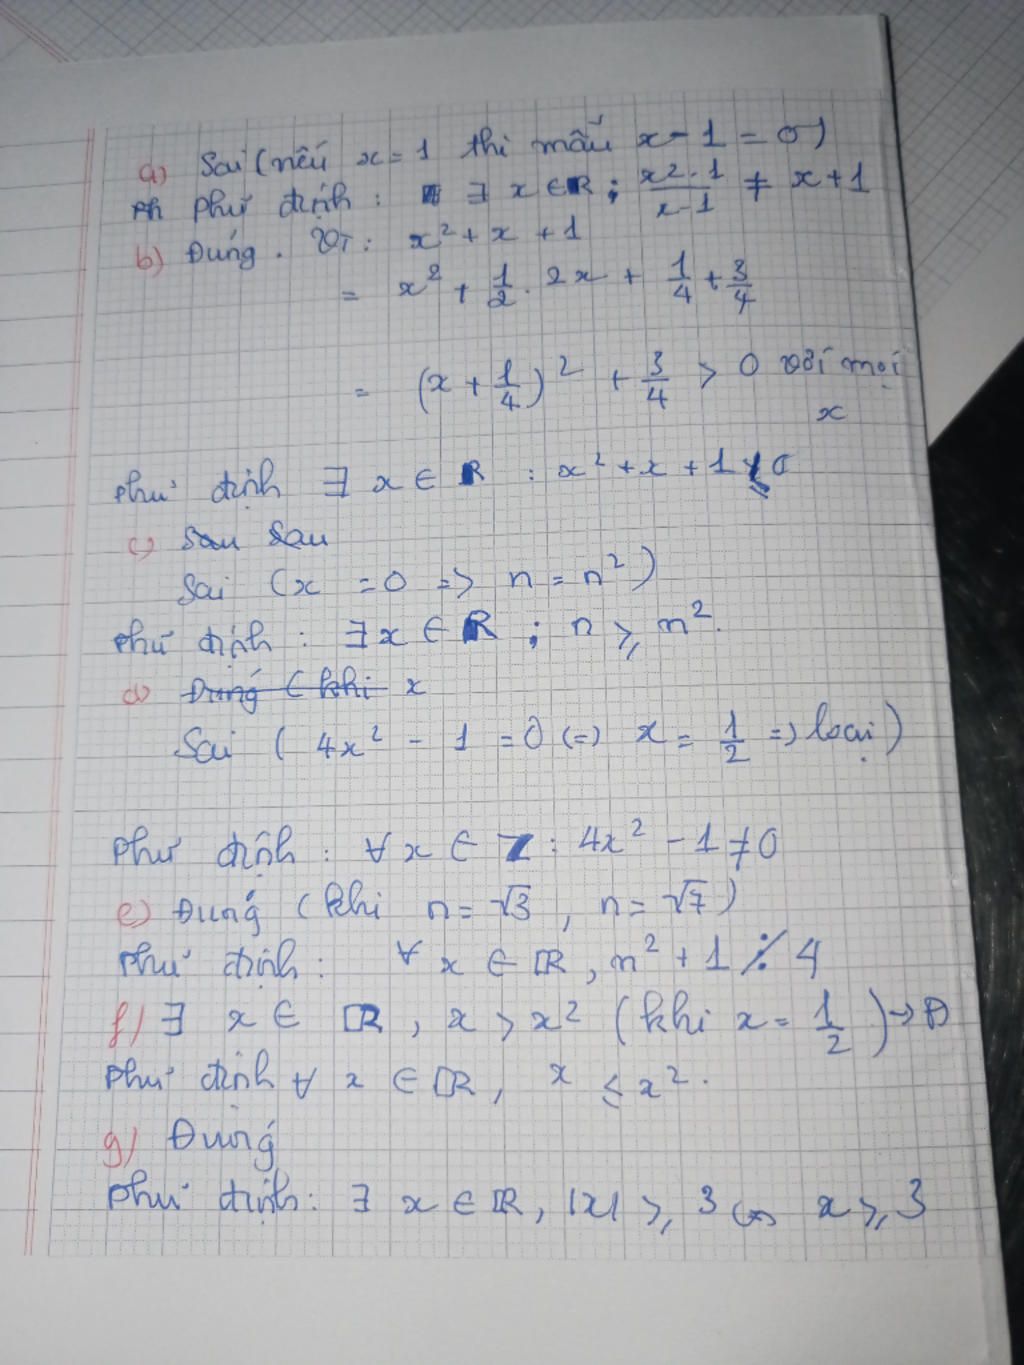 a) Sai (nếu x = 1 thì mẫu x - 1 = 0)
Ph phủ định : ∃ x ∈ R ; x² - 1 / x - 1 ≠ x + 1
b) Đúng . VT : x² + x + 1
= x² + 1/2 . 2x + 1/4 + 3/4
= (x + 1/4)² + 3/4 > 0 với mọi
x
phủ định ∃ x ∈ R : x² + x + 1 ≤ 0
c) Sau Sau
Sai (x = 0 => n = n²)
phủ định : ∃ x ∈ R ; n ⩾ n².
d) Đúng (khi x
Sai ( 4x² - 1 = 0 (=) x = 1/2 => loại )
phủ định : ∀ x ∈ Z : 4x² - 1 ≠ 0
e) Đúng (khi n = √3 , n = √7)
phủ định : ∀ x ∈ R , n² + 1 ⋮̸ 4
f) ∃ x ∈ R , x > x² (khi x = 1/2) → Đ
phủ định ∀ x ∈ R , x ⩽ x².
g) Đúng
phủ định : ∃ x ∈ R , |x| ⩾ 3 (=) x ⩾ 3